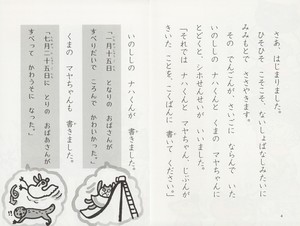 さあ、はじまりました。
ひそひそ こそこそ、ないしょばなしみたいに
みみもとで ささやきます。
その でんごんが、さいごに ならんで いた
いのししの ナハくんと くまの マヤちゃんに
とどくと、シホせんせいが いいました。
「それでは ナハくんと マヤちゃん、じぶんが
きいた ことを、こくばんに 書いて ください。」
いのししの ナハくんが 書きました。
「一月二十五日に となりの おばさんが
すべりだいで ころんで かわいかった。」
くまの マヤちゃんも 書きました。
「七月二十五日に とりの おばあさんが
すべって かわうそに なった。」